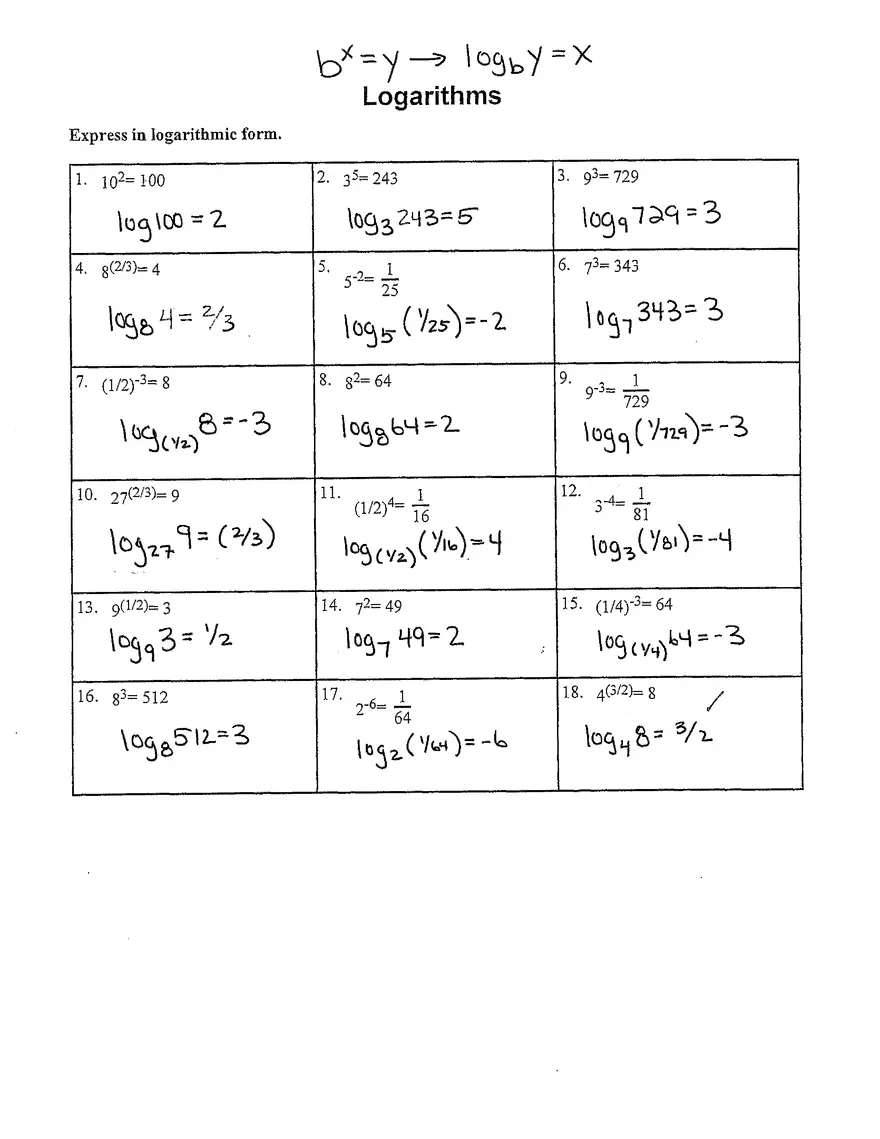 bˣ = y → log_b y = x
Logarithms
Express in logarithmic form.
1. 10²= 100
log 100 = 2
2. 3⁵= 243
log₃ 243 = 5
3. 9³= 729
log₉ 729 = 3
4. 8^(2/3)= 4
log₈ 4 = 2/3
5. 5⁻²= 1/25
log₅ (1/25) = -2
6. 7³= 343
log₇ 343 = 3
7. (1/2)⁻³= 8
log_(1/2) 8 = -3
8. 8²= 64
log₈ 64 = 2
9. 9⁻³= 1/729
log₉ (1/729) = -3
10. 27^(2/3)= 9
log₂₇ 9 = (2/3)
11. (1/2)⁴= 1/16
log_(1/2) (1/16) = 4
12. 3⁻⁴= 1/81
log₃ (1/81) = -4
13. 9^(1/2)= 3
log₉ 3 = 1/2
14. 7²= 49
log₇ 49 = 2
15. (1/4)⁻³= 64
log_(1/4) 64 = -3
16. 8³= 512
log₈ 512 = 3
17. 2⁻⁶= 1/64
log₂ (1/64) = -6
18. 4^(3/2)= 8
log₄ 8 = 3/2